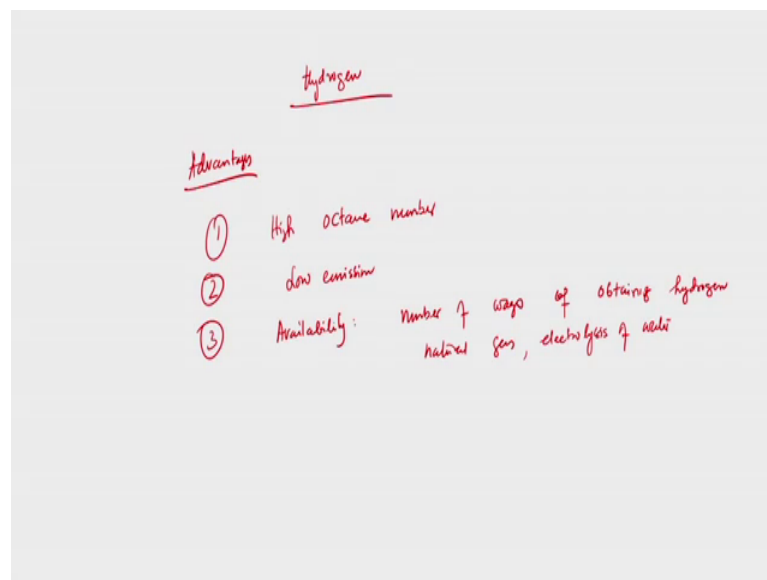 Hydrogen
Advantages
1 High octane number
2 Low emission
3 Availability: number of ways of obtaining hydrogen
natural gas, electrolysis of water